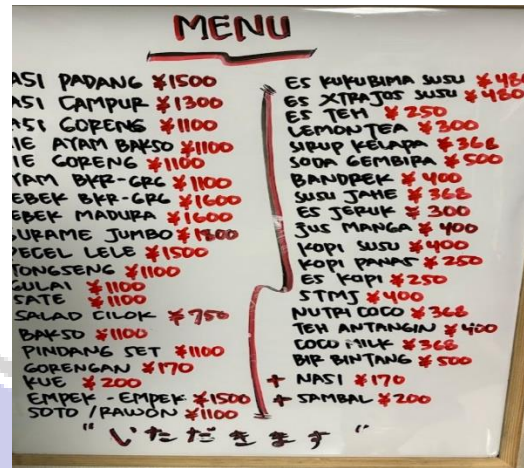 MENU
ASI PADANG ¥1500
ASI CAMPUR ¥1300
ASI GORENG ¥1100
IE AYAM BAKSO ¥1100
IE GORENG ¥1100
YAM BKR-GRG ¥1100
EBEK BKR-GRG ¥1600
EBEK MADURA ¥1600
GURAME JUMBO ¥1800
PECEL LELE ¥1500
TONGSENG ¥1100
GULAI ¥1100
SATE ¥1100
SALAD CILOK ¥750
BAKSO ¥1100
PINDANG SET ¥1100
GORENGAN ¥170
KUE ¥200
EMPEK - EMPEK ¥1500
SOTO / RAWON ¥1100
ES KUKUBIMA SUSU ¥480
ES XTRAJOS SUSU ¥480
ES TEH ¥250
LEMON TEA ¥300
SIRUP KELAPA ¥368
SODA GEMBIRA ¥500
BANDREK ¥400
SUSU JAHE ¥368
ES JERUK ¥300
JUS MANGA ¥400
KOPI SUSU ¥400
KOPI PANAS ¥250
ES KOPI ¥250
STMJ ¥400
NUTRI COCO ¥368
TEH ANTANGIN ¥400
COCO MILK ¥368
BIR BINTANG ¥500
+ NASI ¥170
+ SAMBAL ¥200
"いただきます"